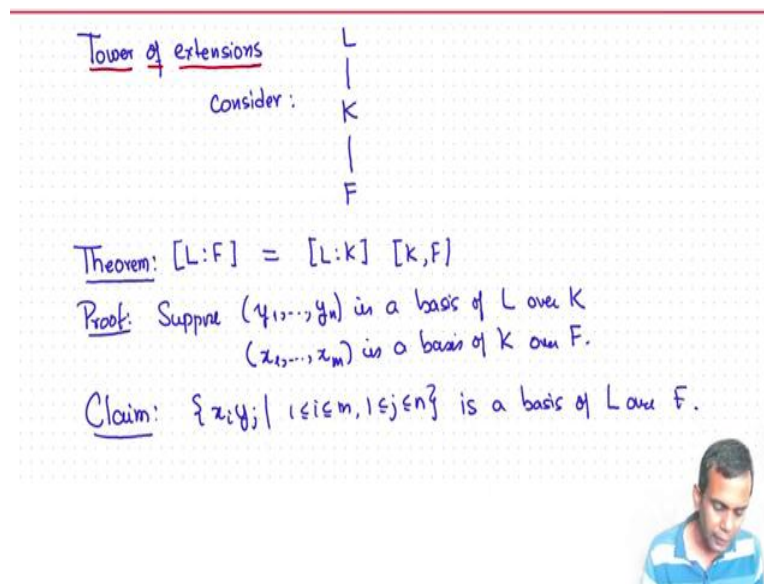 Tower of extensions
L
Consider :
K
F
Theorem: [L:F] = [L:K] [K,F)
Proof: Suppose (y₁,..,yₙ) is a basis of L over K
(x₁,...,xₘ) is a basis of K over F.
Claim: {xᵢyⱼ | 1≤i≤m, 1≤j≤n} is a basis of L over F.